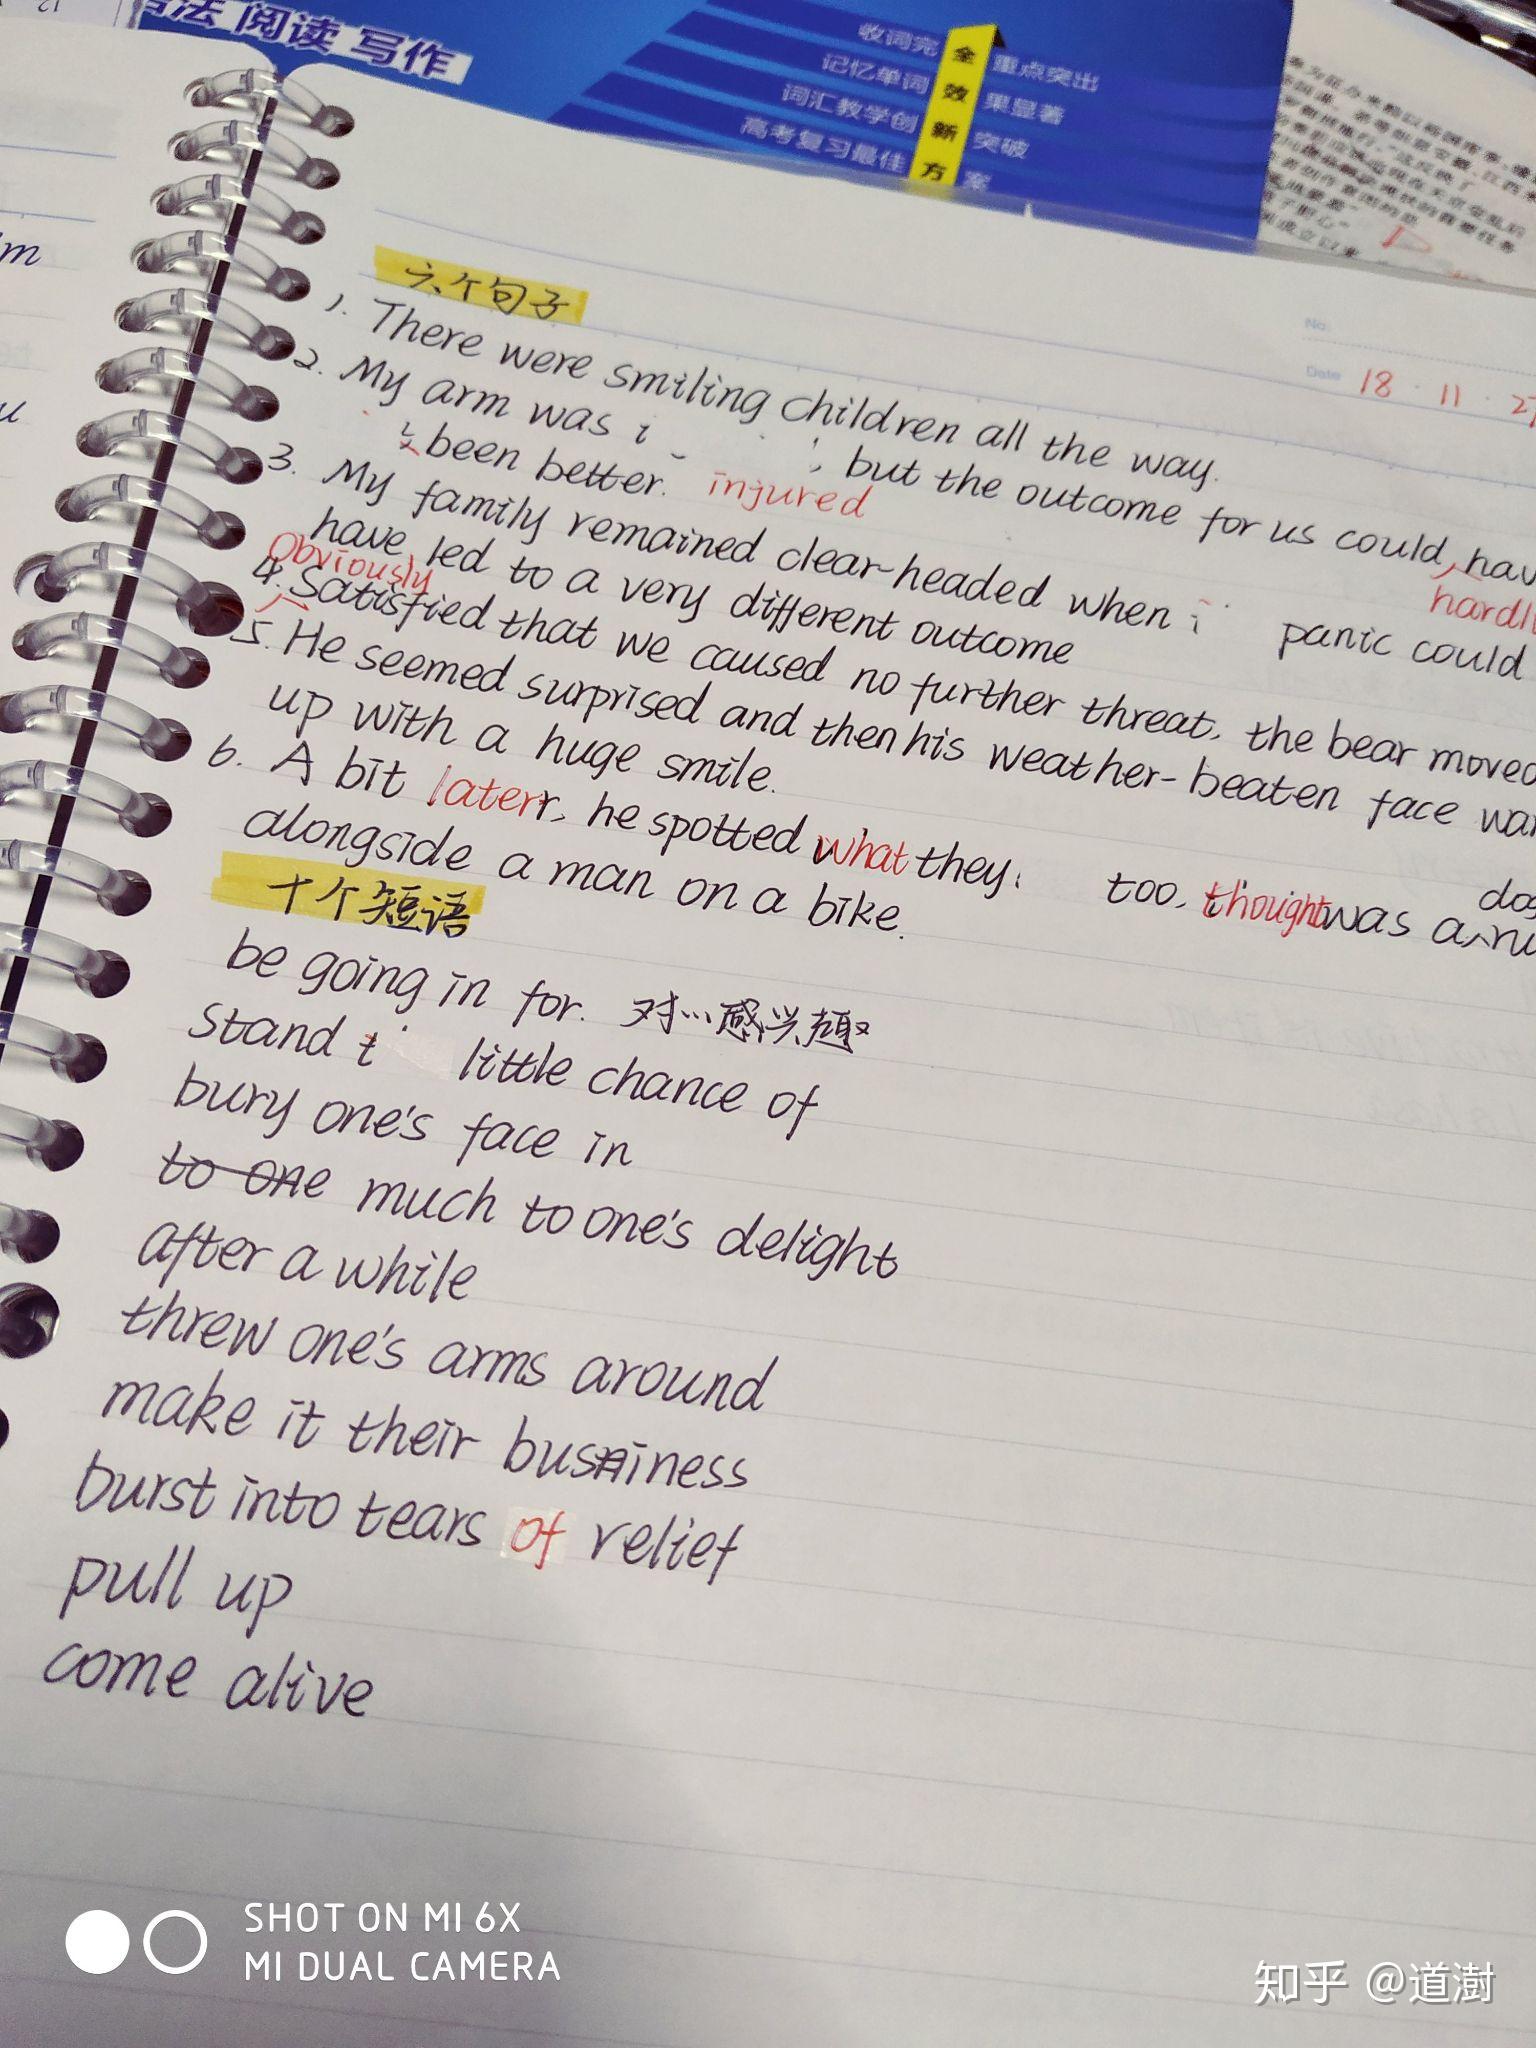 法 阅读 写作
收词完 全 重点突出
记忆单词 效 果显著
词汇教学创 新 突破
高考复习最佳 方 案
No.
Date 18 · 11 · 27
六个句子
1. There were smiling children all the way.
2. My arm was i , but the outcome for us could hav
hardl
been better. injured
3. My family remained clear-headed when i panic could
have led to a very different outcome
Obviously
4. Satisfied that we caused no further threat, the bear moved
5. He seemed surprised and then his weather-beaten face was
up with a huge smile.
6. A bit later, he spotted what they, too, thought was a ru
dog
alongside a man on a bike.
十个短语
be going in for. 对…感兴趣
stand t little chance of
bury one's face in
to one much to one's delight
after a while
threw one's arms around
make it their business
burst into tears of relief
pull up
come alive
SHOT ON MI 6X
MI DUAL CAMERA
知乎 @道澍